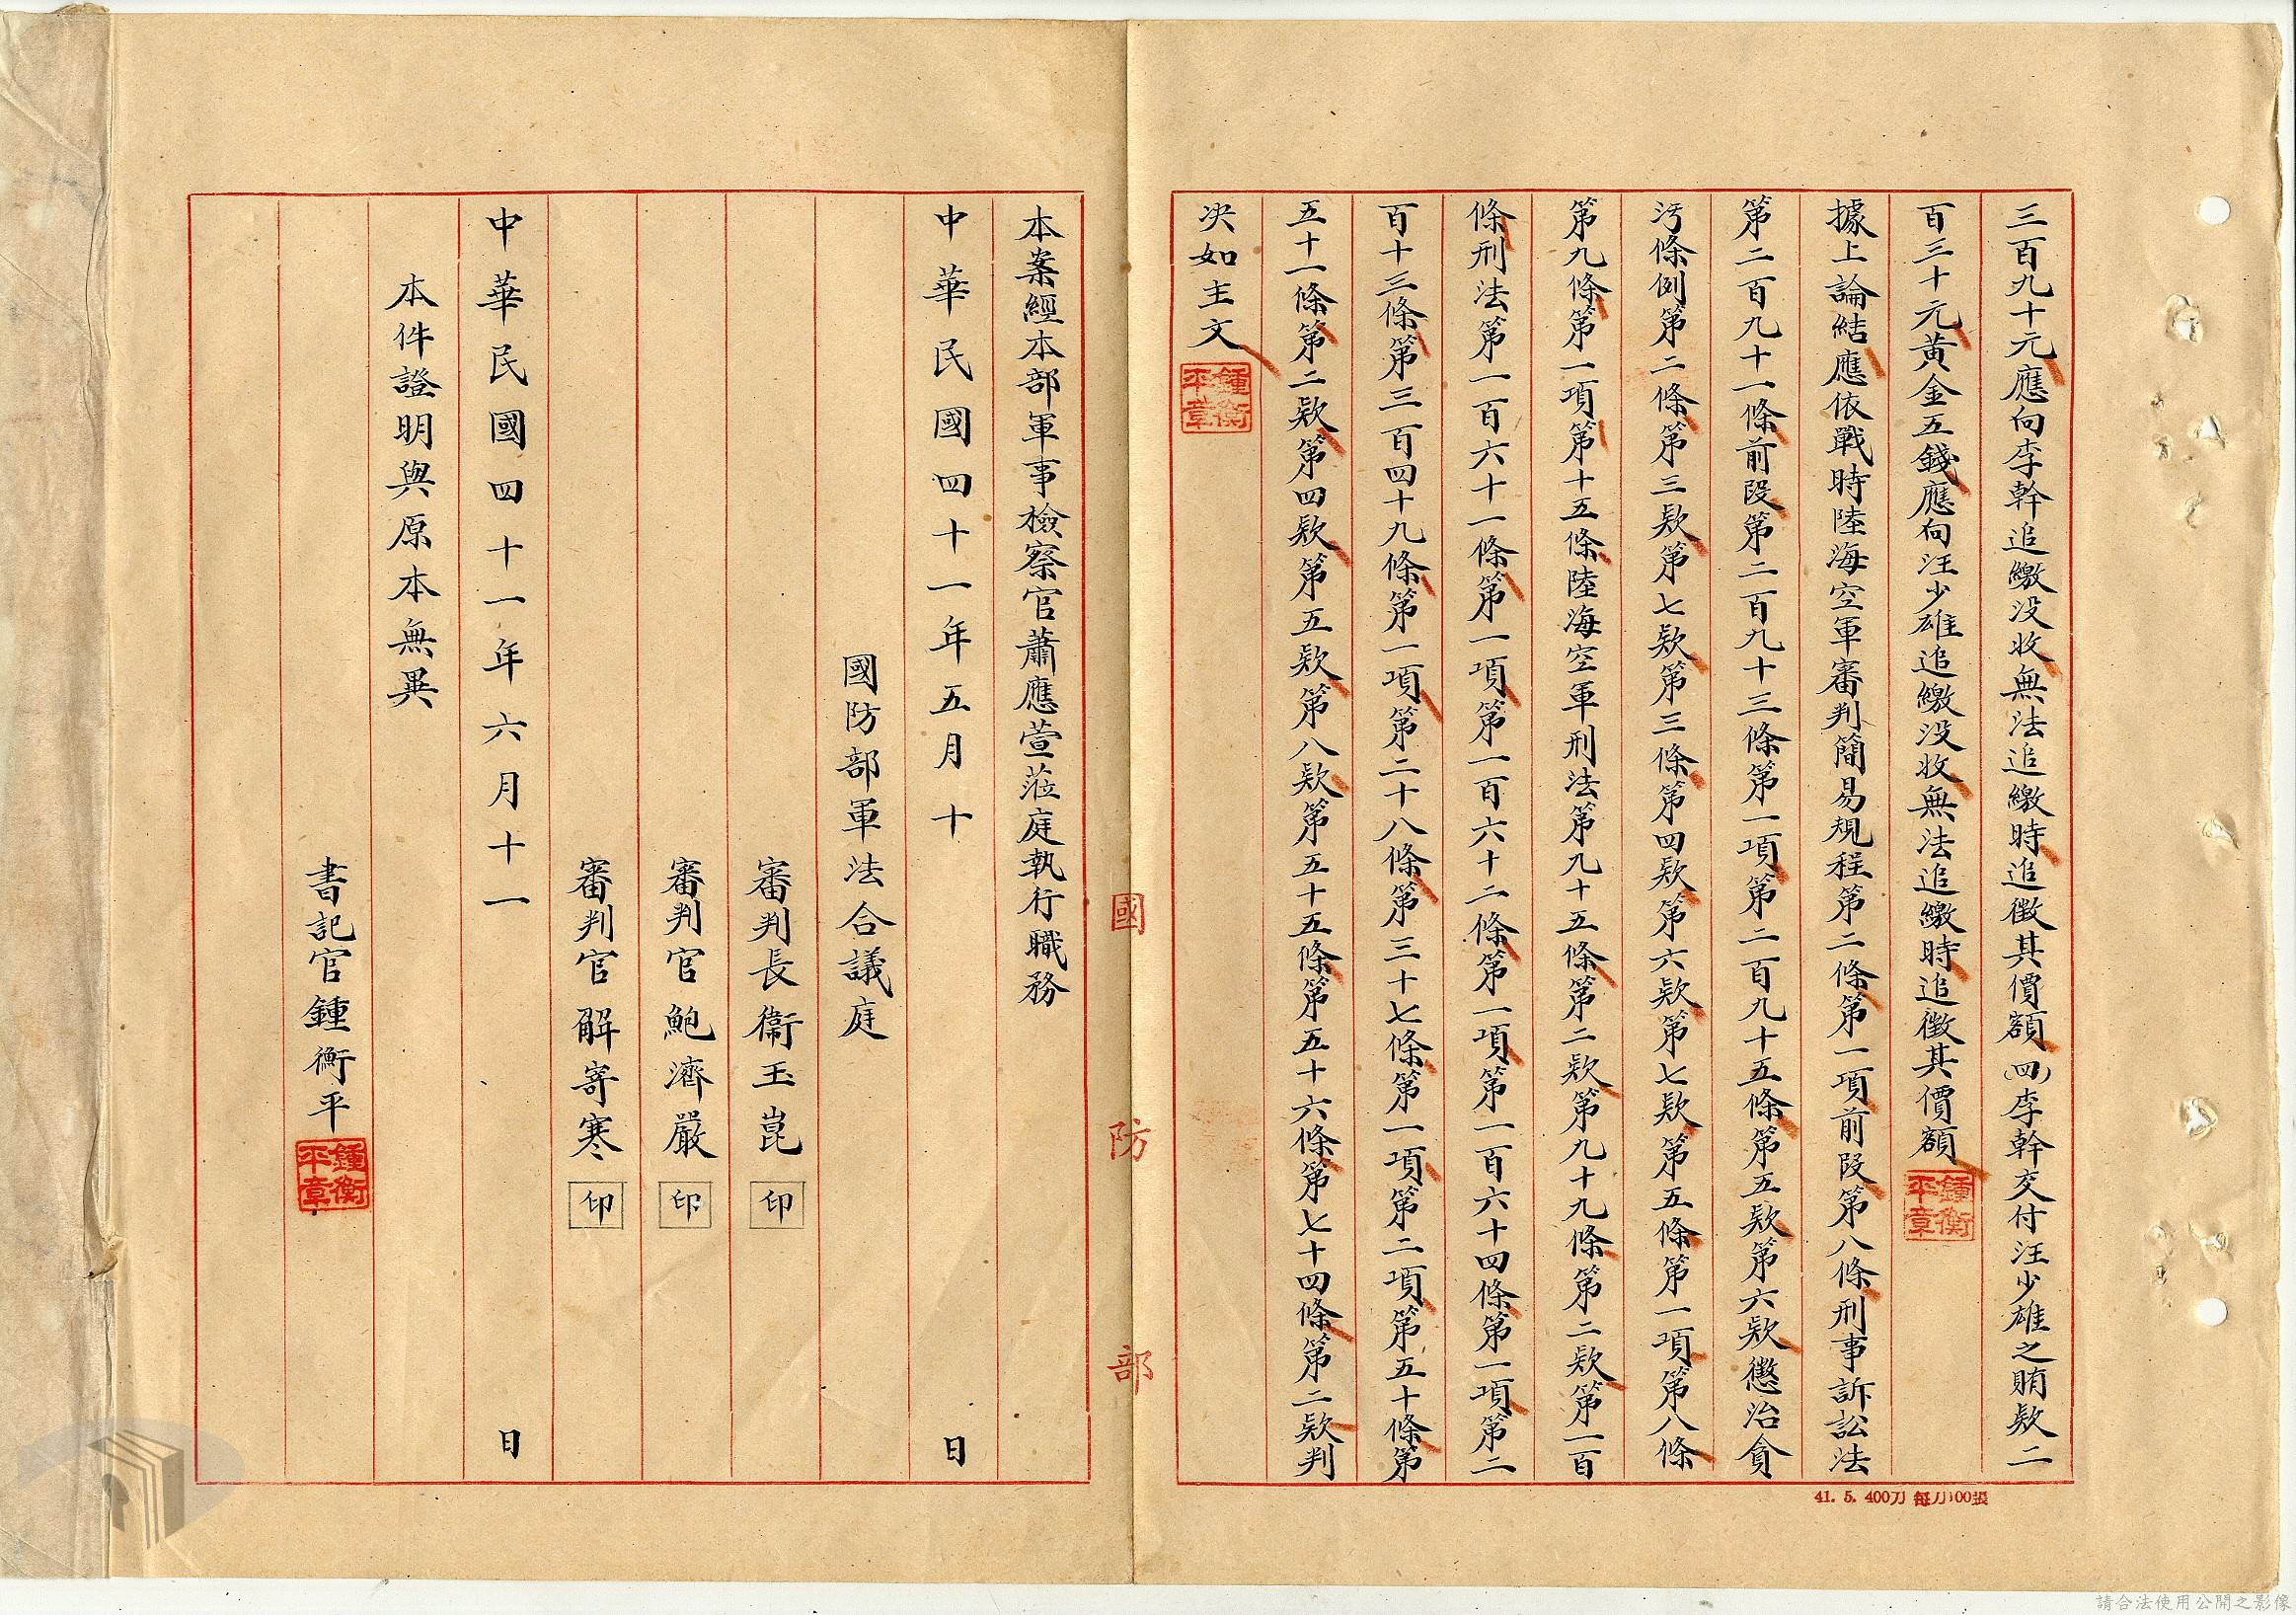 三百九十元應向李幹追繳没收無法追繳時追徵其價額(四)李幹交付汪少雄之賄款二
百三十元黃金五錢應向汪少雄追繳没收無法追繳時追徵其價額
鍾衡平章
據上論結應依戰時陸海空軍審判簡易規程第二條第一項前段第八條刑事訴訟法
第二百九十一條前段第二百九十三條第一項第二百九十五條第五款第六款懲治貪
污條例第二條第三款第七款第三條第四款第六款第七款第五條第一項第八條
第九條第一項第十五條陸海空軍刑法第九十五條第二款第九十九條第二款第一百
條刑法第一百六十一條第一項第一百六十二條第一項第一百六十四條第一項第二
百十三條第三百四十九條第一項第二十八條第三十七條第一項第二項第五十條第
五十一條第二款第四款第五款第八款第五十五條第五十六條第七十四條第二款判
決如主文
鍾衡平章
41. 5. 400刀 每刀100張
國防部
本案經本部軍事檢察官蕭應萱蒞庭執行職務
中華民國四十一年五月十日
國防部軍法合議庭
審判長衞玉崑 印
審判官鮑濟嚴 印
審判官解寄寒 印
中華民國四十一年六月十一日
本件證明與原本無異
書記官鍾衡平
鍾衡平章
請合法使用公開之影像